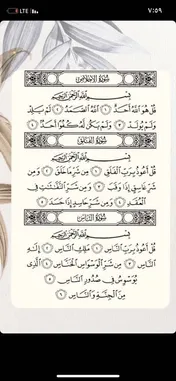 ٧:٥٩
سُورَةُ الإِخْلَاصِ
بِسْمِ اللَّهِ الرَّحْمَٰنِ الرَّحِيمِ
قُلْ هُوَ اللَّهُ أَحَدٌ ١ اللَّهُ الصَّمَدُ ٢ لَمْ يَلِدْ
وَلَمْ يُولَدْ ٣ وَلَمْ يَكُن لَّهُ كُفُوًا أَحَدٌ ٤
سُورَةُ الْفَلَقِ
بِسْمِ اللَّهِ الرَّحْمَٰنِ الرَّحِيمِ
قُلْ أَعُوذُ بِرَبِّ الْفَلَقِ ١ مِن شَرِّ مَا خَلَقَ ٢ وَمِن
شَرِّ غَاسِقٍ إِذَا وَقَبَ ٣ وَمِن شَرِّ النَّفَّاثَاتِ فِي
الْعُقَدِ ٤ وَمِن شَرِّ حَاسِدٍ إِذَا حَسَدَ ٥
سُورَةُ النَّاسِ
بِسْمِ اللَّهِ الرَّحْمَٰنِ الرَّحِيمِ
قُلْ أَعُوذُ بِرَبِّ النَّاسِ ١ مَلِكِ النَّاسِ ٢ إِلَٰهِ
النَّاسِ ٣ مِن شَرِّ الْوَسْوَاسِ الْخَنَّاسِ ٤ الَّذِي
يُوَسْوِسُ فِي صُدُورِ النَّاسِ ٥
مِنَ الْجِنَّةِ وَالنَّاسِ ٦